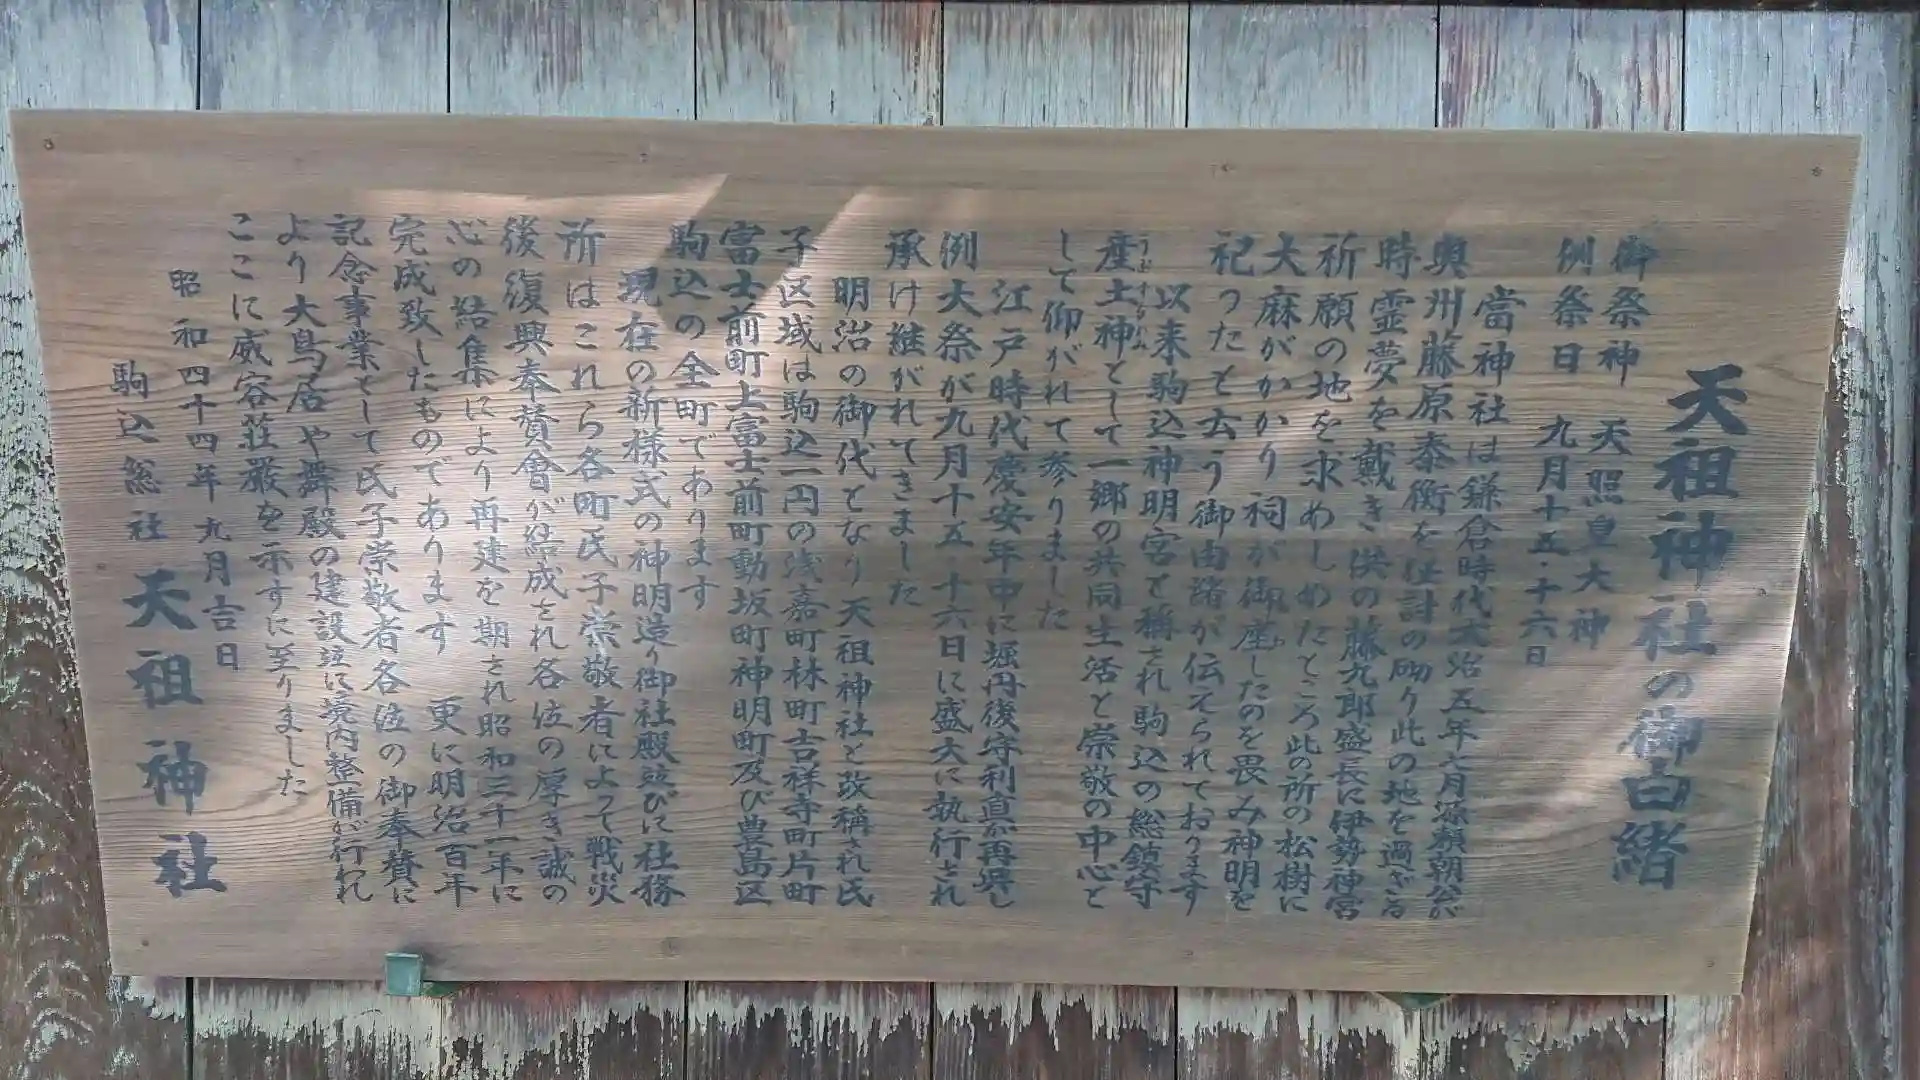 天祖神社の御由緒
御祭神 天照皇大神
例祭日 九月十五・十六日
當神社は鎌倉時代文治五年七月源頼朝公が
奥州藤原泰衡を征討の砌り此の地を過ぎる
時霊夢を戴き供の藤九郎盛長に伊勢神宮
祈願の地を求めしめたところ此の所の松樹に
大麻がかかり祠が御座したのを畏み神明を
祀ったと云う御由緒が伝えられております
以来駒込神明宮と稱され駒込の総鎮守
産土神として一郷の共同生活と崇敬の中心と
うぶすなかみ
して仰がれて参りました
江戸時代慶安年中に堀丹後守利直が再興し
例大祭が九月十五 十六日に盛大に執行され
承け継がれてきました
明治の御代となり天祖神社と改稱され氏
子区域は駒込一円の浅嘉町林町吉祥寺町片町
富士前町上富士前町動坂町神明町及び豊島区
駒込の全町であります
現在の新様式の神明造り御社殿竝びに社務
所はこれら各町氏子崇敬者によって戦災
後復興奉賛會が結成され各位の厚き誠の
心の結集により再建を期され昭和三十一年に
完成致したものであります 更に明治百年
記念事業として氏子崇敬者各位の御奉賛に
より大鳥居や舞殿の建設竝に境内整備が行われ
ここに威容荘厳を示すに至りました
昭和四十四年九月吉日
駒込総社 天祖神社